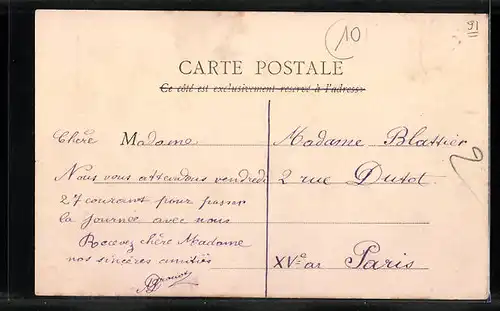 10
91
CARTE POSTALE
Ce côté est exclusivement réservé à l'adresse
Chère Madame
Nous vous attendons vendredi
27 courant pour passer
la journée avec nous
Recevez chère Madame
nos sincères amitiés
Madame Blattier
2 rue Dutot
XVe ar Paris
2